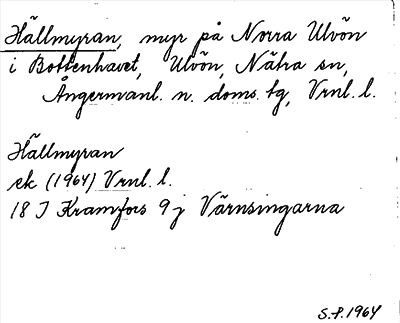 Hällmyran, myr på Norra Ulvön
i Bottenhavet, Ulvön, Nätra sn,
Ångermanl. n. doms. tg, Vrnl. l.
Hällmyran
ek (1964) Vrnl. l.
18 I Kramfors 9 j Värnsingarna
S.P. 1964